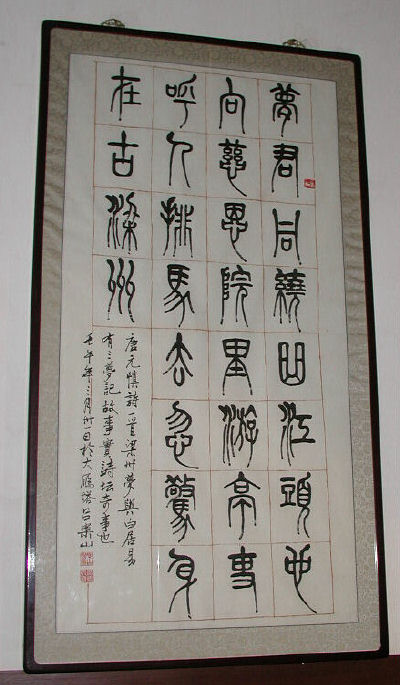 夢君同繞曲江頭也
向慈恩院里游亭吏
呼人排馬去忽驚身
在古梁州
唐元慎詩一首梁州夢與白居易
有三夢記故事實詩坛奇事也
壬午年三月卅一日於大雁塔